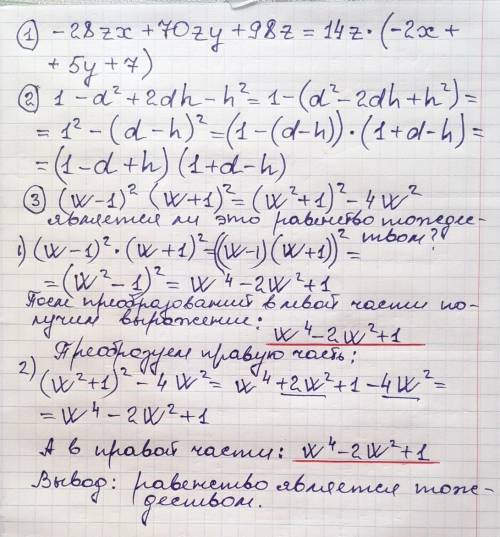 ① -28zx+70zy+98z=14z·(-2x+
+5y+7)
② 1-d²+2dh-h²=1-(d²-2dh+h²)=
=1²-(d-h)²=(1-(d-h))·(1+d-h)=
=(1-d+h)(1+d-h)
③ (w-1)² (w+1)²=(w²+1)²-4w²
является ли это равенство тождес-
твом?
1) (w-1)²·(w+1)²=((w-1)(w+1))²=
=(w²-1)²=w⁴-2w²+1
После преобразований в левой части по-
лучим выражение: w⁴-2w²+1
Преобразуем правую часть:
2) (w²+1)²-4w²=w⁴+2w²+1-4w²=
=w⁴-2w²+1
А в правой части: w⁴-2w²+1
Вывод: равенство является тож-
деством.